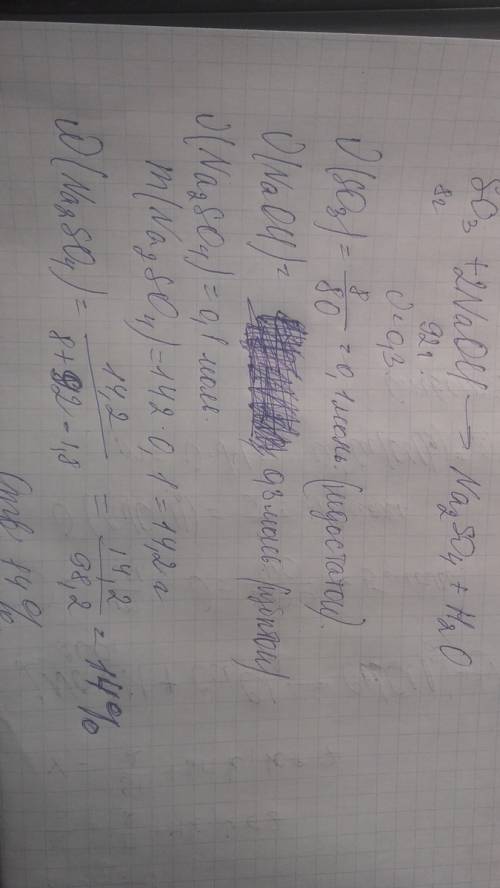 SO₃ + 2NaOH → Na₂SO₄ + H₂O
8г 92г.
ν=0,3.
ν(SO₃) = 8/80 = 0,1 моль. (недостаток).
ν(NaOH) = 0,3 моль (избыток)
ν(Na₂SO₄) = 0,1 моль.
m(Na₂SO₄) = 142 · 0,1 = 14,2 г
ω(Na₂SO₄) = 14,2/8+92-1,8 = 14,2/98,2 = 14%
Отв 14%